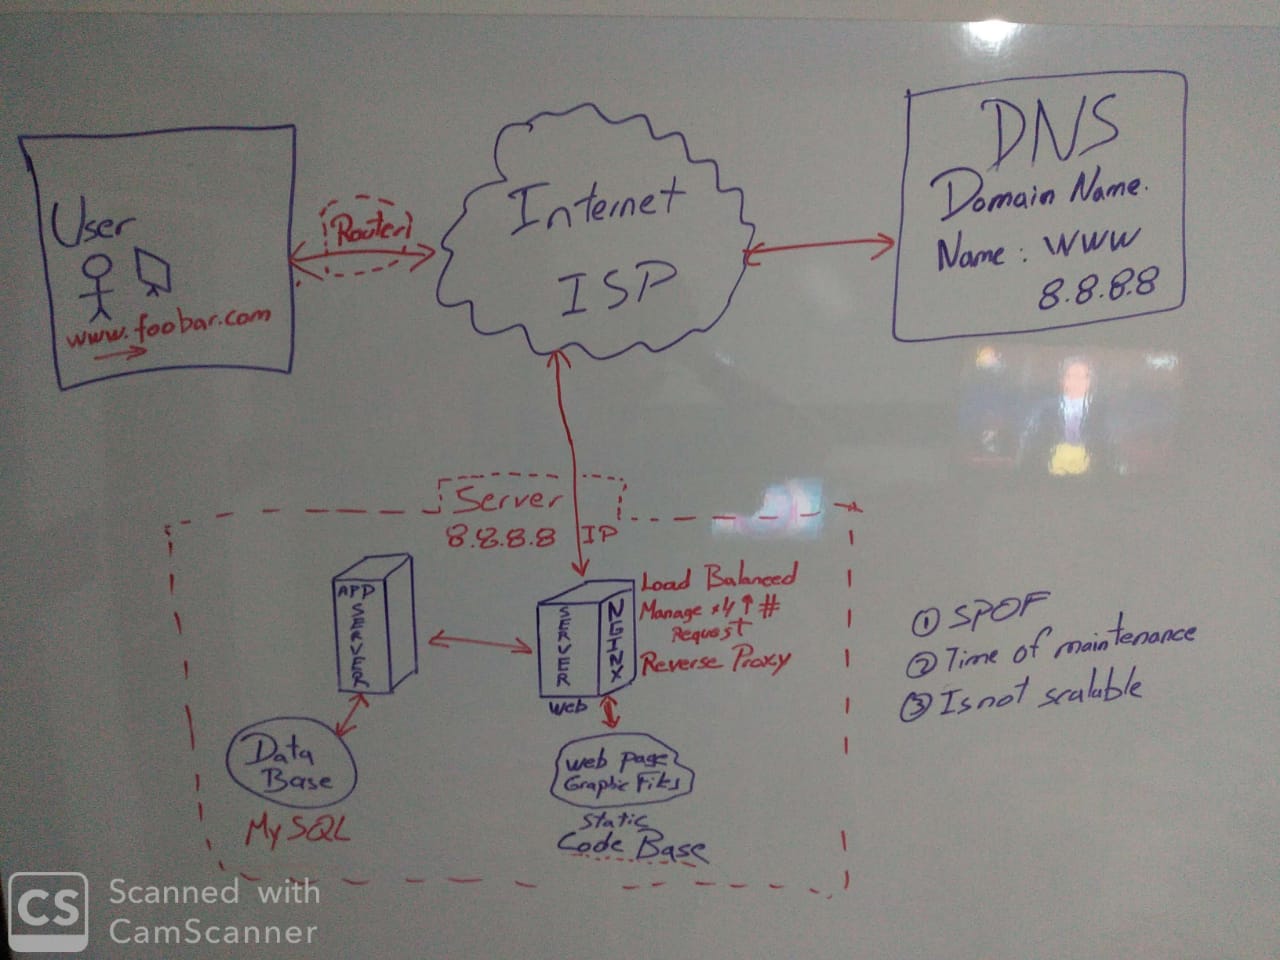 User
www.foobar.com
Router
Internet
ISP
DNS
Domain Name.
Name: WWW
8.8.8.8
Server
8.8.8.8 IP
APP
SERVER
SERVER
NGINX
Web
Load Balanced
Manage *4 ↑ #
Request
Reverse Proxy
Data
Base
MySQL
Web Page
Graphic Files
Static
Code Base
① SPOF
② Time of maintenance
③ Is not scalable
CS
Scanned with
CamScanner